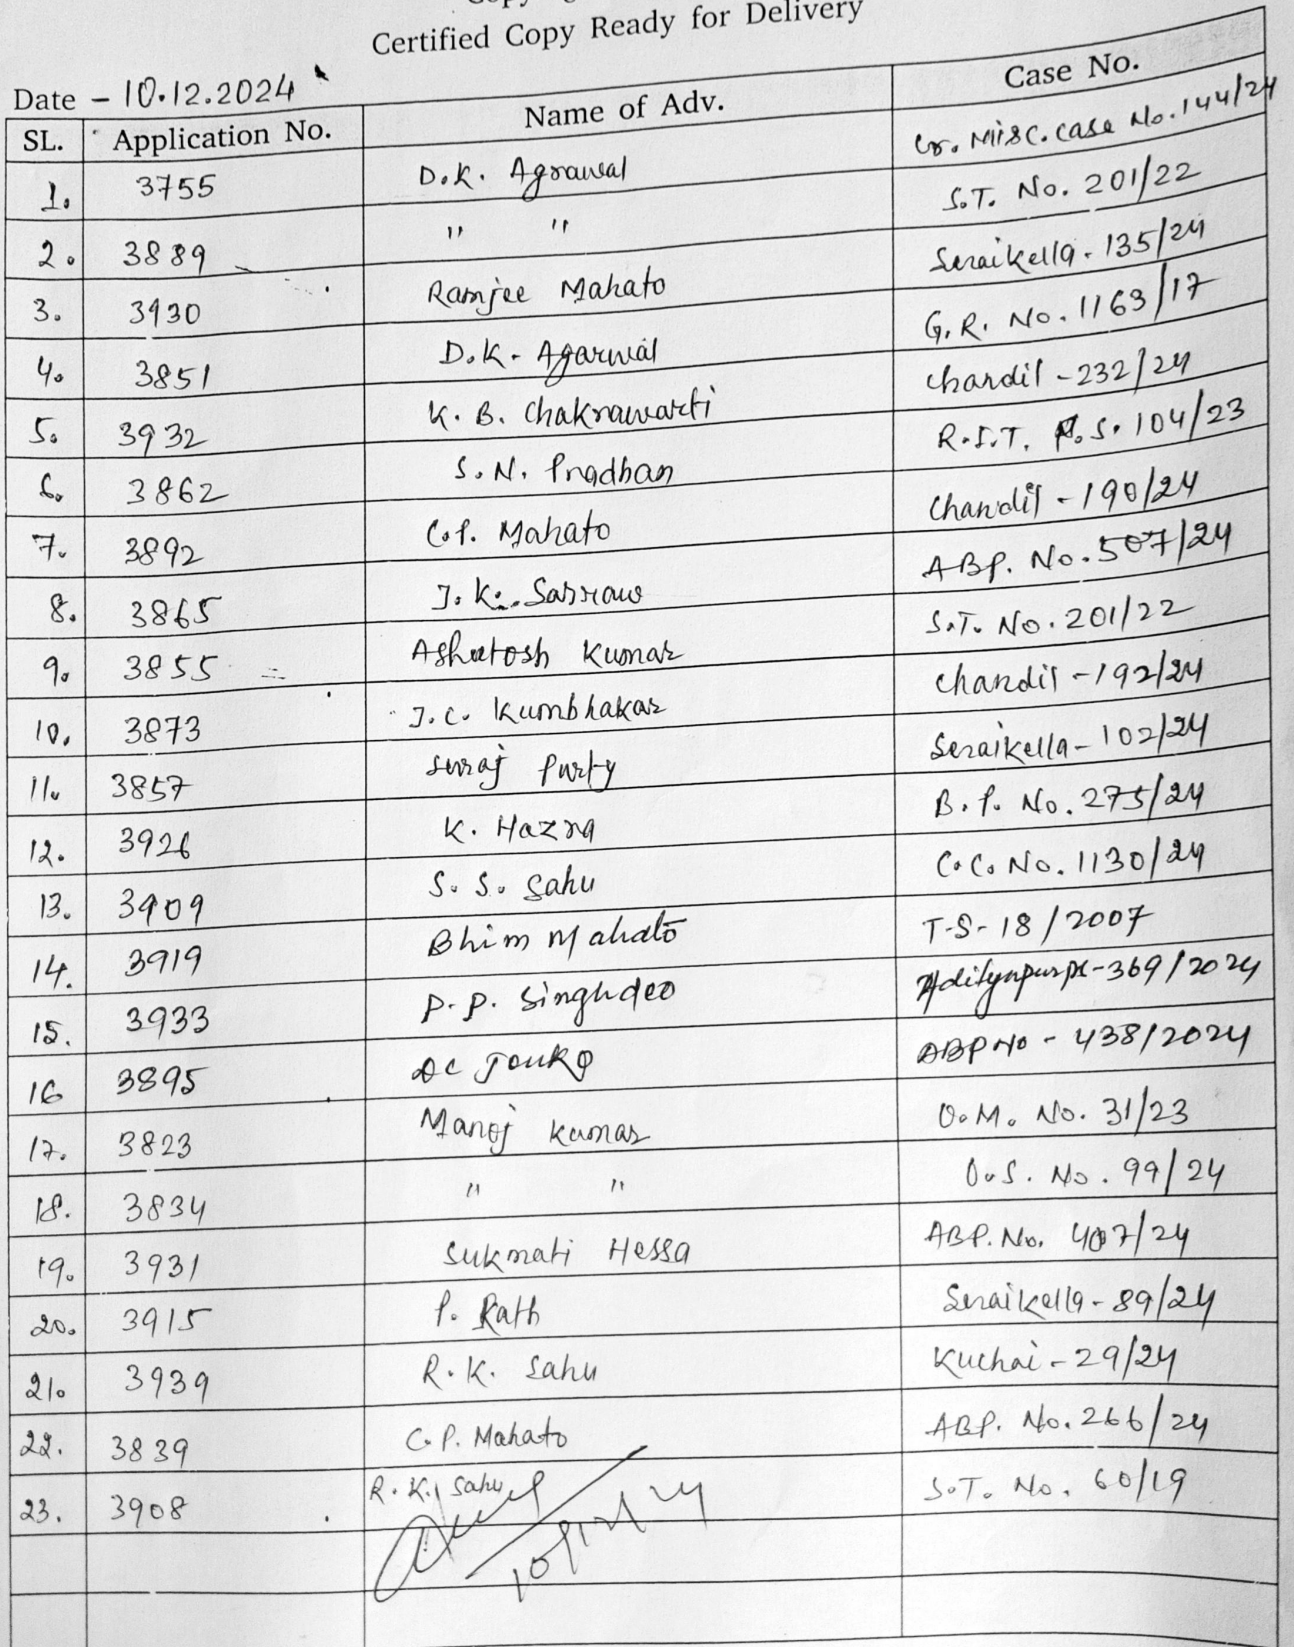 Certified Copy Ready for Delivery
Date - 10.12.2024
SL. Application No. Name of Adv. Case No.
1. 3755 D.K. Agrawal Cr. Misc. Case No. 144/24
2. 3889 " " S.T. No. 201/22
3. 3930 Ramjee Mahato Seraikella - 135/24
4. 3851 D.K. Agarwal G.R. No. 1163/17
5. 3932 K. B. Chakrawarti Chandil - 232/24
6. 3862 S.N. Pradhan R.S.T. 104/23
7. 3892 C.P. Mahato Chandil - 190/24
8. 3865 J.K. ABP. No. 507/24
9. 3855 Ashutosh Kumar S.T. No. 201/22
10. 3873 J.C. Kumbhakar Chandil - 192/24
11. 3857 Suraj Purty Seraikella - 102/24
12. 3926 K. Hazra B.P. No. 275/24
13. 3909 S. S. Sahu C.C. No. 1130/24
14. 3919 Bhim Mahato T-S- 18/2007
15. 3933 P.P. Singhdeo Adityapur ps - 369/2024
16 3895 ABP No - 438/2024
17. 3823 Manoj Kumar O.M. No. 31/23
18. 3834 " " O.S. No. 99/24
19. 3931 Sukmati Hessa ABP. No. 407/24
20. 3915 P. Rath Seraikella - 89/24
21. 3939 R.K. Sahu Kuchai - 29/24
22. 3839 C.P. Mahato ABP. No. 266/24
23. 3908 R.K. Sahu S.T. No. 60/19
10/12/24